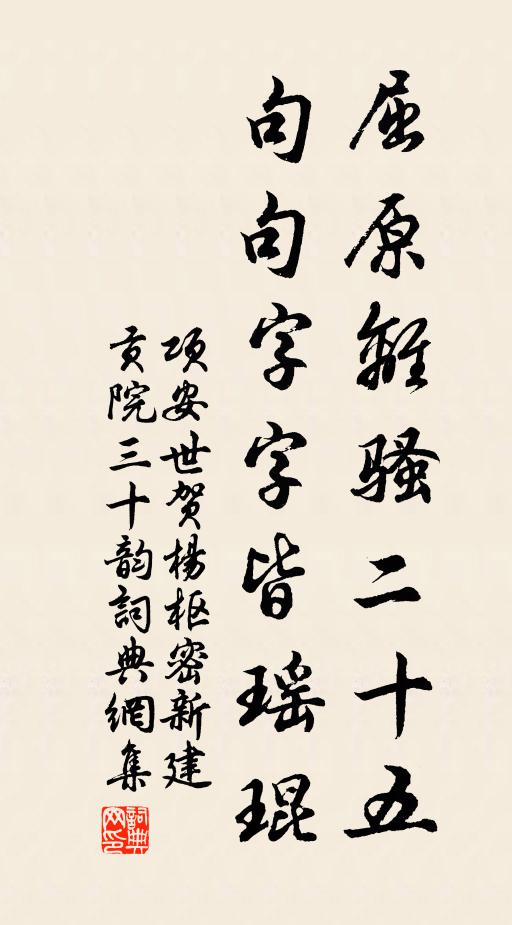 屈原離騷二十五
句句字字皆瑶琨
项安世贺楊枢密新建
贡院三十韵詞典網集
詞典网印